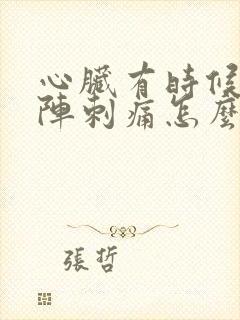 心臟有時候
陣刺痛怎麼
張哲